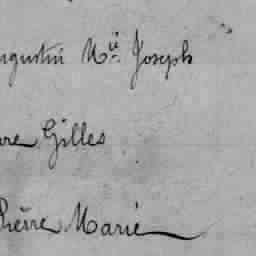 ugustin M.ie Joseph
re Gilles
Pierre Marie